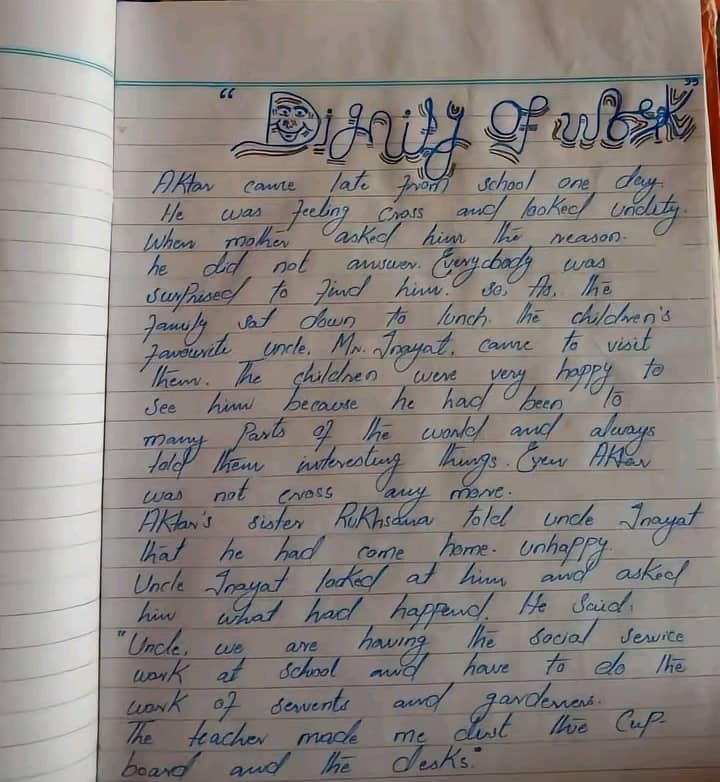 "Dignity of work"
Aktar came late from school one day.
He was feeling cross and looked undity.
When mother asked him the reason.
he did not answer. Everybody was
surprised to find him. so, As, the
family sat down to lunch. the children's
favourite uncle, Mr. Inayat, came to visit
them. The children were very happy to
see him because he had been to
many parts of the world and always
told them interesting things. Even Aktar
was not cross any more.
Aktar's sister Rukhsana told uncle Inayat
that he had come home. unhappy.
Uncle Inayat looked at him and asked
him what had happend. He said:
"Uncle, we are having the social service
work at school and have to do the
work of servents and gardeners.
The teacher made me dust the Cup-
board and the desks."